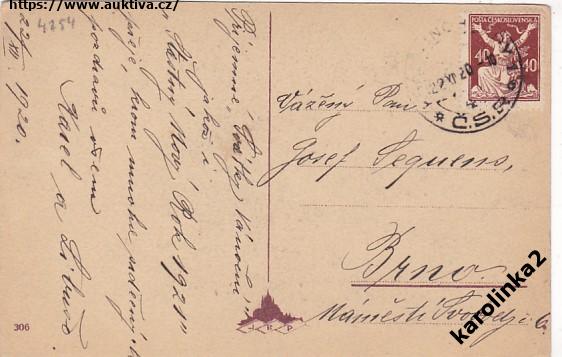 https://www.auktiva.cz/
4254
Příjemné svátky vánoční
jakož i
"Šťastný Nový Rok 1921"
přeje, krom mnoha srdečných
pozdravů všem
Karel a Libuše
22/XII 1920.
POŠTA ČESKOSLOVENSKÁ
40 40
Č.S.R.
Vážený Pan
Josef Sequens,
Brno.
Náměstí Svobody
306
karolinka2